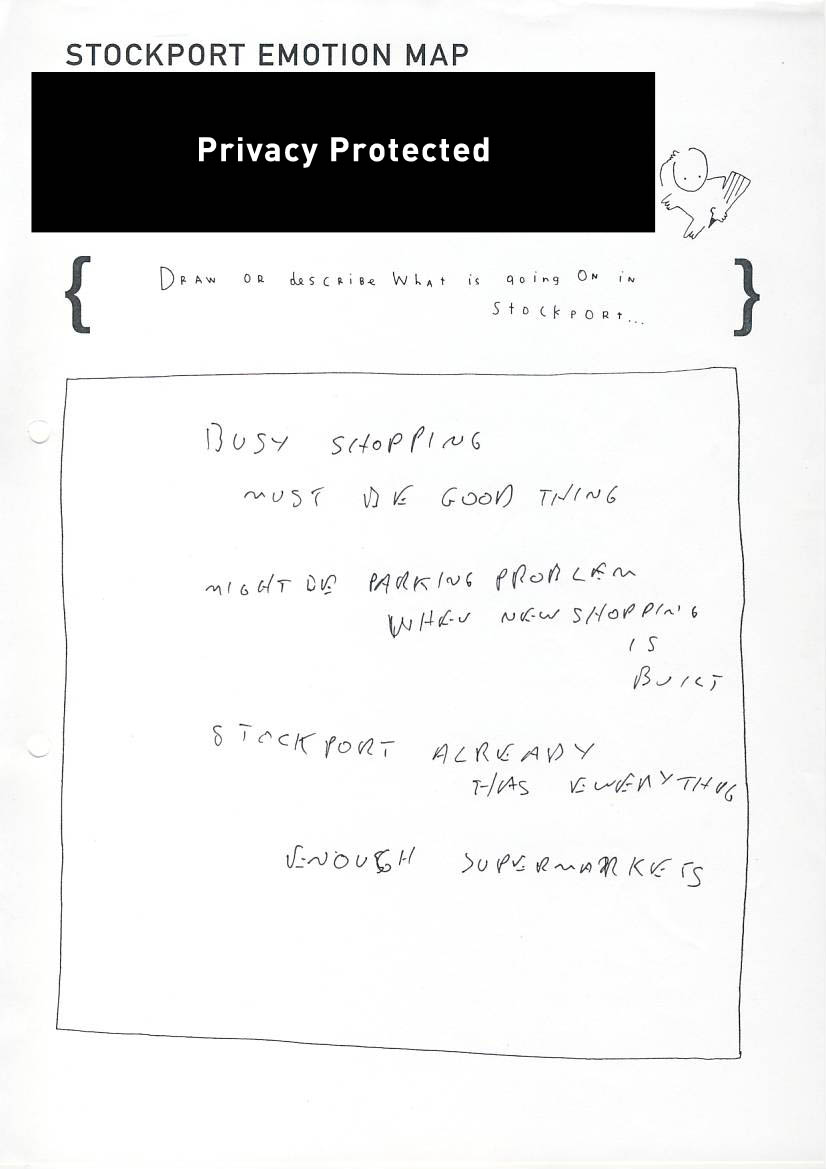 STOCKPORT EMOTION MAP
Privacy Protected
{ DRAW OR describe What is going ON in
Stockport... }
BUSY SHOPPING
MUST BE GOOD THING
MIGHT BE PARKING PROBLEM
WHEN NEW SHOPPING
IS
BUILT
STOCKPORT ALREADY
HAS EWERYTHING
ENOUGH SUPERMARKETS